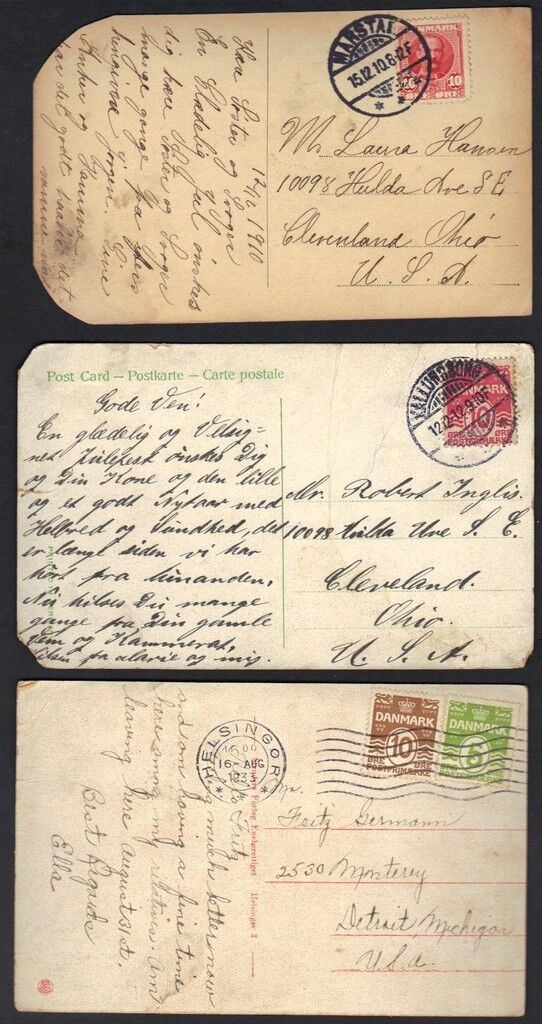 MARSTAL
15.12.10.8-12F
10
ØRE
12/6 1910
Kære Søster og Svoger
En Glædelig Jul ønskes
dig kære Søster og Svoger
mange gange fra
Svoger
Anker og
godt
Mrs Laura Hansen
10098 Hulda Ave S.E.
Clevenland Ohio
U. S. A
Post Card – Postkarte – Carte postale
Gode Ven!
En glædelig og Velsig-
net Julefest ønskes Dig
og Din Kone og den lille
og et godt Nytaar med
Helbred og Sundhed, det
er længe siden vi har
hørt fra hinanden,
Nu hilses Du mange
gange fra Din gamle
Ven og Kammerat,
og mig.
KALLUNDBORG
DANMARK
10
ØRE ØRE
POSTFRIMÆRKE
Mr. Robert Inglis.
10098 Hulda Ave S. E.
Cleveland.
Ohio.
U. S. A.
HELSINGØR
16 AUG
1933
DANMARK
10
ØRE ØRE
POSTFRIMÆRKE
DANMARK
6
ØRE ØRE
POSTFRIMÆRKE
Fritz
much better now
and am having a fine time
here among my relatives. Am
leaving here August 31st.
Best Regards
Ella
Forlag Eneberettiget Helsingør 3
Mr.
Fritz Germann
2530 Monterey
Detroit Michigan
U.S.A.